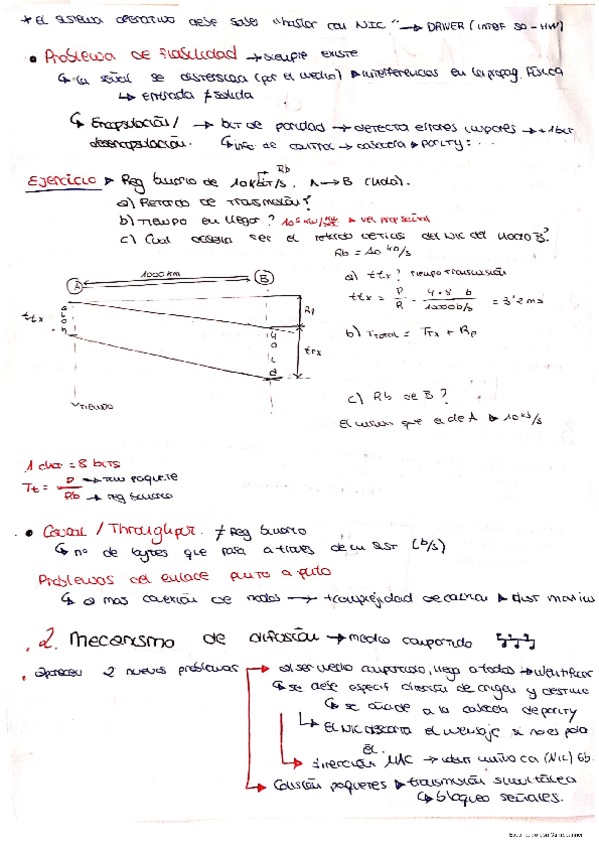 * El sistema operativo debe saber "hablar con NIC" → DRIVER (interf SO-HW)
• Problema de fiabilidad → siempre existe
↳ la señal se distorsiona (por el medio) ▸ interferencias en la propag. física
↳ entrada ≠ salida
↳ Encapsulación / → bit de paridad → detecta errores impares → +1 bit
desencapsulación. ↳ info de control → cabecera ▸ parity: ...
Rb
Ejercicio ▸ Reg binario de 10 kbit/s. A→B (hola).
a) Retardo de transmisión?
b) Tiempo en llegar?
c) Cual debería ser el del NIC del Host B?
Rb = 10 kb/s
1000 km
A
B
a) ttx? Tiempo transmisión
ttx = P/R = 4·8 b / 10000 b/s = 3'2 ms
ttx
Rp
ttx
b) Ttotal = Ttx + Rp
c) Rb de B?
El mismo que el de A ▸ 10 kb/s
TIEMPO
1 char = 8 bits
Tt = P → tam paquete
Rb → reg binario
• Caudal / Throughput. ≠ Reg binario
↳ nº de bytes que pasa a través de un sist (b/s)
Problemas del enlace punto a punto
↳ a mas conexión de nodos → + complejidad de ▸ dist
2. Mecanismo de difusión → medio compartido
. aparecen 2 nuevos problemas → al ser medio compartido, llega a todos → identificar
↳ se debe especif dirección de origen y destino
↳ se añade a la cabecera de parity
↳ El NIC descarta el mensaje si no es para
él.
→ dirección MAC → ident única (NIC) 6b.
→ Colisión paquetes ▸ transmisión simultánea
↳ bloqueo señales.